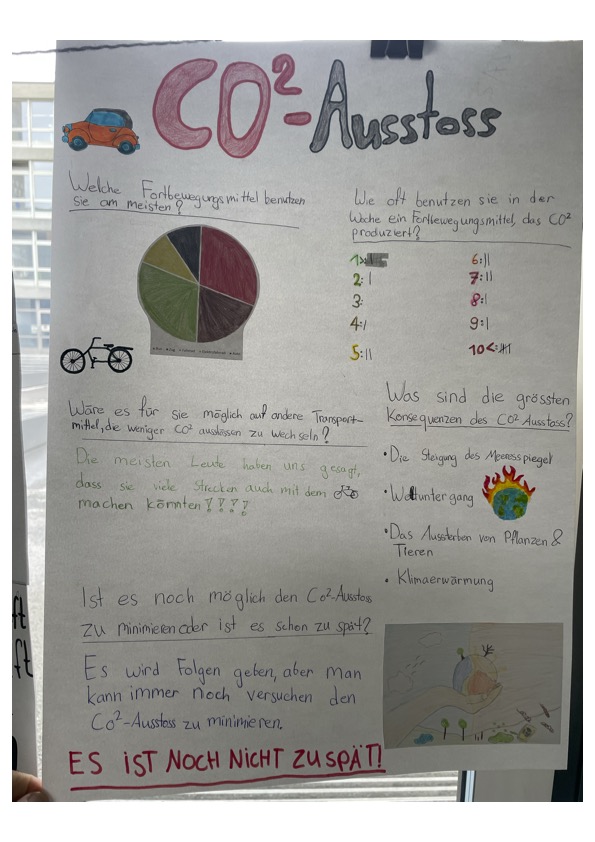 CO²-Ausstoss
Welche Fortbewegungsmittel benutzen
Sie am meisten?
Wie oft benutzen sie in der
Woche ein Fortbewegungsmittel, das CO²
produziert?
2: |
3:
4: |
5: ||
6: ||
7: ||
8: |
9: |
10<:
Wäre es für sie möglich auf andere Transport-
mittel, die weniger CO² ausstossen zu wechseln?
Die meisten Leute haben uns gesagt,
dass sie viele Strecken auch mit dem
machen könnten!!!!
Was sind die grössten
Konsequenzen des CO² Ausstoss?
• Die Steigung des Meeresspiegel
• Weltuntergang
• Das Aussterben von Pflanzen &
Tieren
• Klimaerwärmung
Ist es noch möglich den Co²-Ausstoss
zu minimieren oder ist es schon zu spät?
Es wird Folgen geben, aber man
kann immer noch versuchen den
Co²-Ausstoss zu minimieren.
ES IST NOCH NICHT ZU SPÄT!
ft
ft